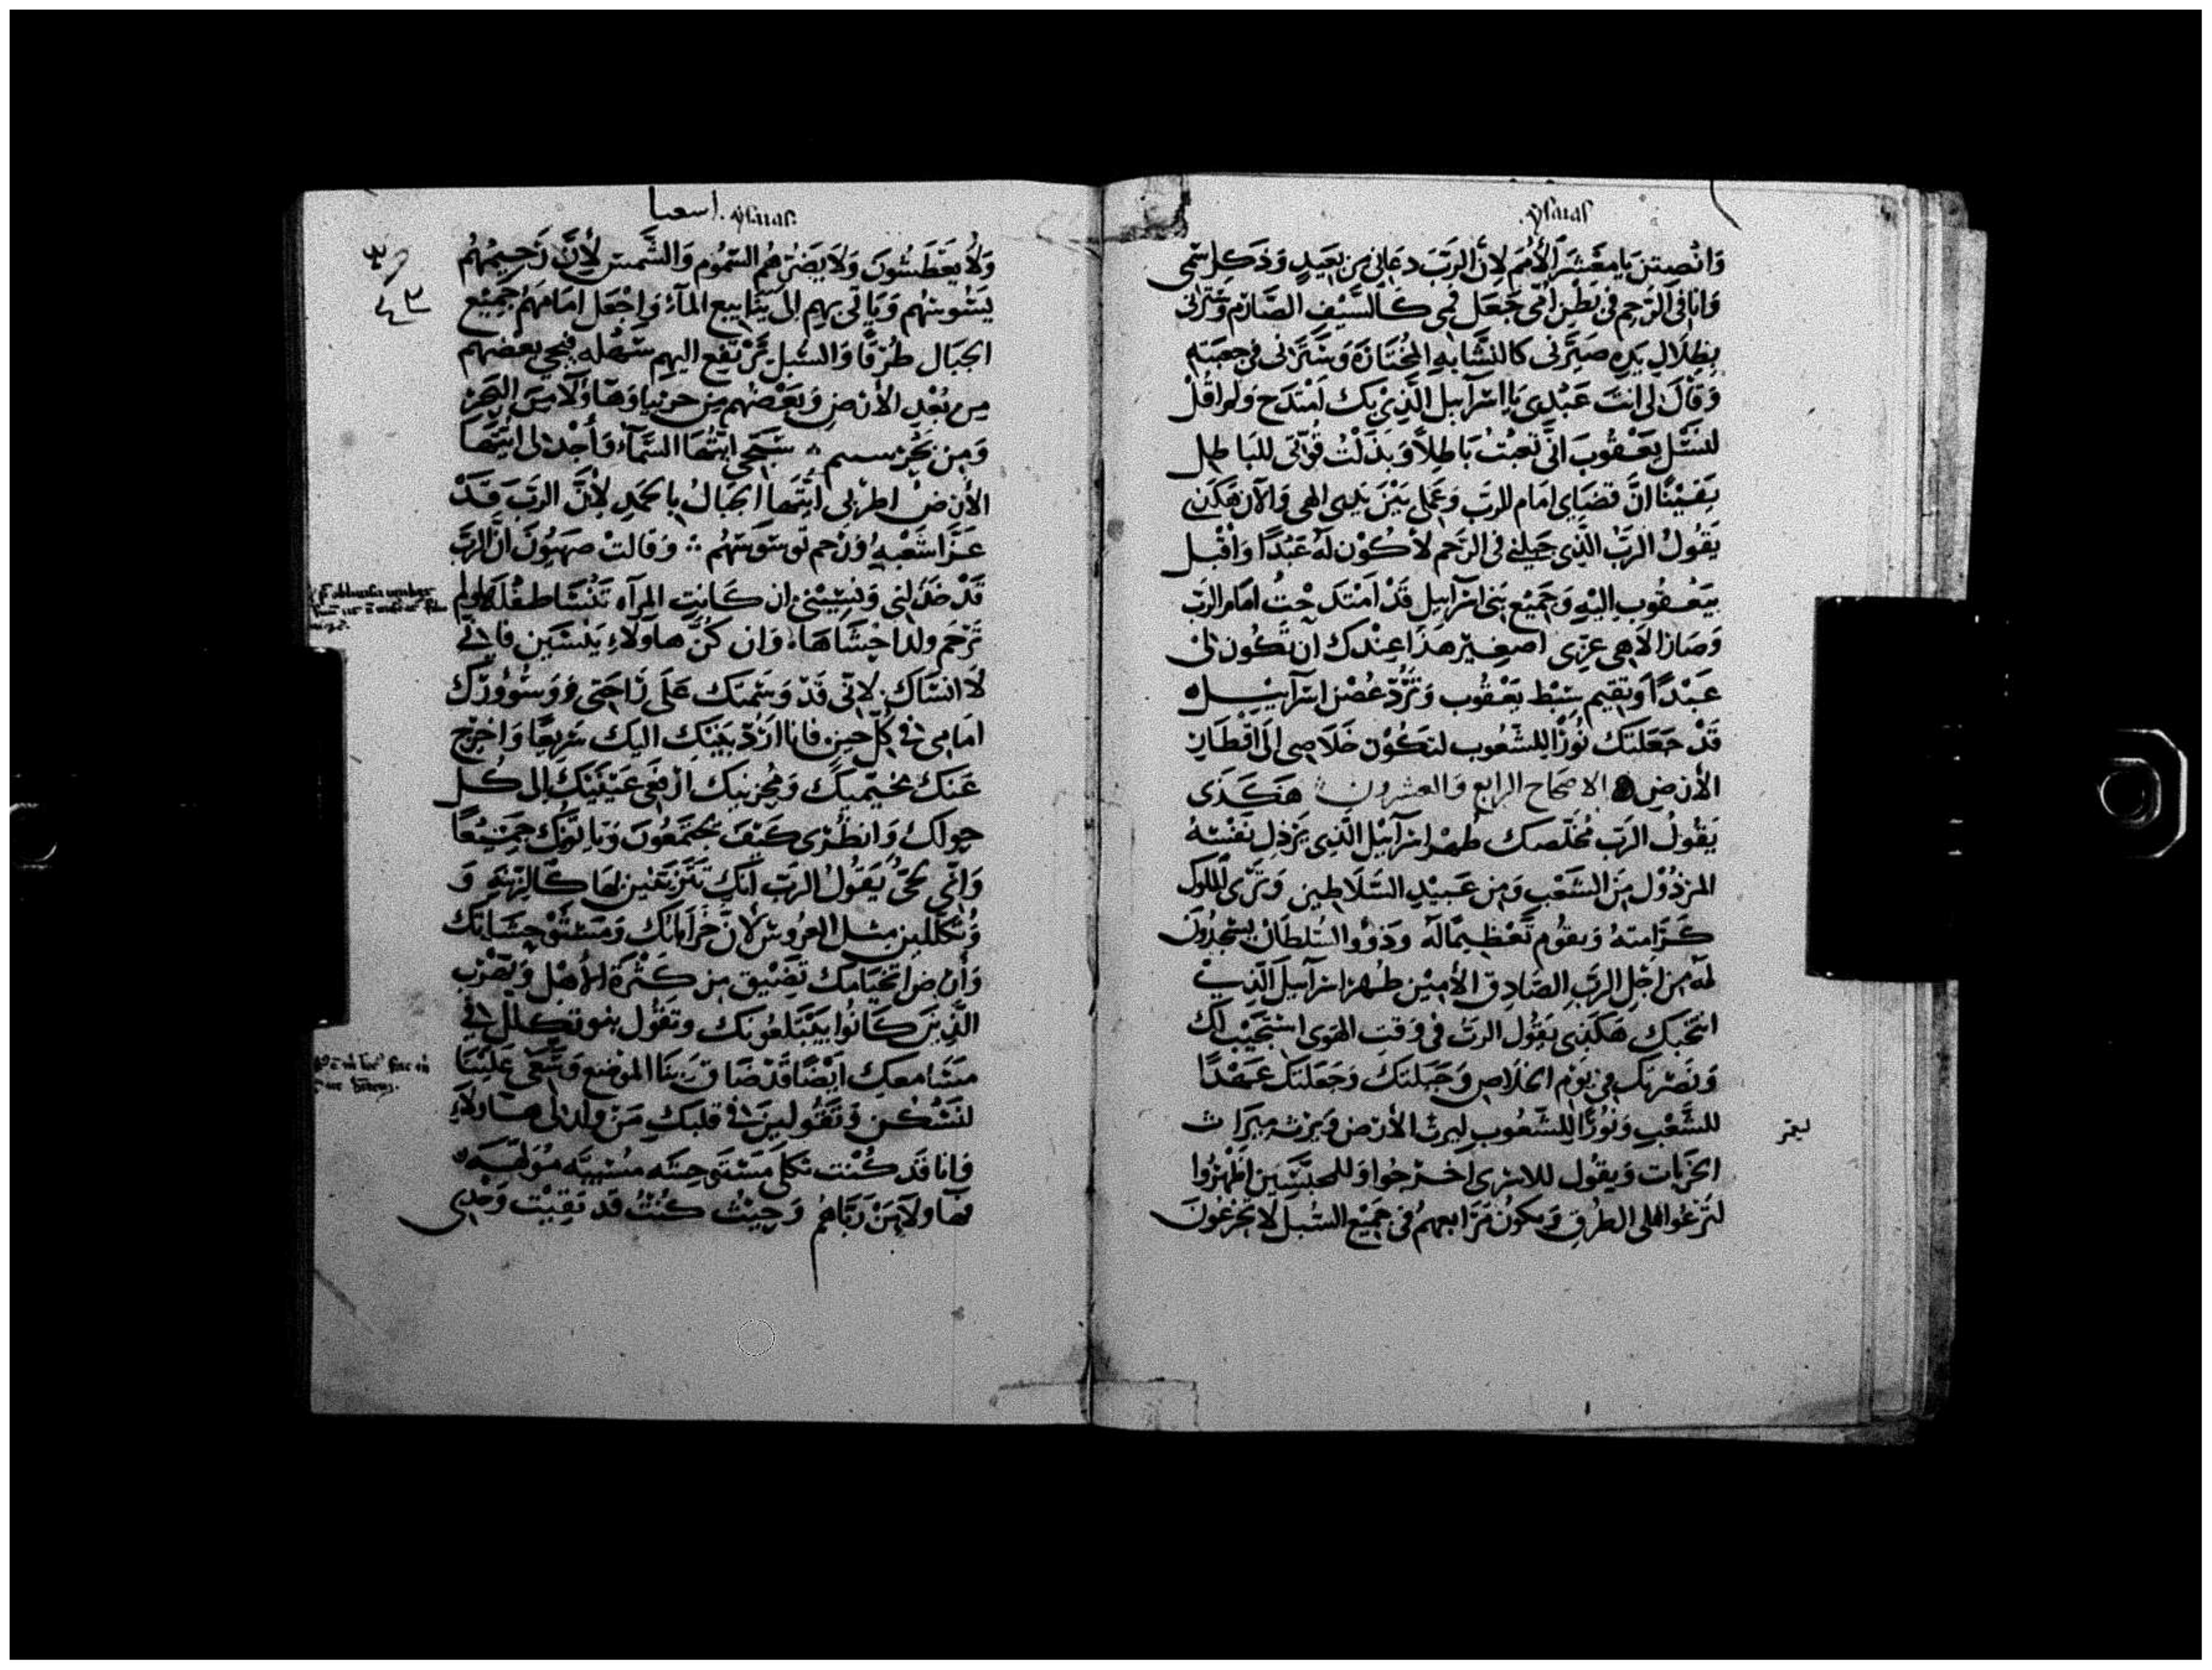 ysaias.
وَانْصِتن يَا مَعْشَرَ الأُمَم لِانَّ الرَبَ دعَانى مِن بَعَيدٍ وَذكل سْمى
وَانا فى الرَّحِم فى بَطْن اُمّى جَعَل فمى كَالسَّيْف الصَّارِم وَسَتَرنى
بظلالِ يَدِه صَيَّرنى كالنشّابهِ المُختَارَه وَسَتَّرَنى فى جعبَته
وَقال لى انتَ عَبْدِى يَا اسْرآييل الَّذِى بك امْتدَح وَلم اقل
لنَسْل يَعْقُوبَ انّى تعبْتُ بَاطِلاً وَبذَلْتُ قُوَّتى للبَاطِل
يَقيْنًا انَّ قضَاى امَام للرَب وَعَملى بَيْنَ يدى الهى وَالآن هَكذى
يَقُولُ الرَبُّ الَّذِى جَبلنى فى الرَّحم لأكُوْن لهُ عَبْدًا وَاقْبل
بيَعْقُوب اليْهِ وَجَميْع بَنى اسْرآييل قَدْ امْتَدَحْتُ امَام الرَب
وَصَارَ الاهى عِزّى اصغيْر هَذا عِنْدك ان تكُون لى
عَبْدًا وَتقيم سِبْط يَعْقُوب وَترُدّ غصْن اسْرآييل
قَدْ جَعَلتك نُوْرًا للشّعُوب لتكُوْن خَلَاصى الَى اقْطَار
الأرْض الاصحَاح الرابع وَالعشرون هَكذَى
يَقُولُ الرَب مُخَلّصك طُهْر اسرآييْل الَّذِى يَرْذِل نفْسَهُ
المرْذُوْل مِنَ الشعْب وَمِن عَبيْدِ السَّلَاطين وَترَى الملوك
كَرَامتهُ وَيقُوم تَعْظيمًا لهُ وَذوُو السُّلطَان يسْجدُونَ
لهُ مِن اجْل الرَبِ الصَادِق الأميْن طُهْر اسرآييل الَّذِى
انتخبك هَكذِى يَقُول الرَبُ فى وَقت الهَوى استَجَيْب لك
وَنصْرتك فى يَوْم الخَلَاص وَجَبلتك وَجَعَلتك عَهْدًا
للشَّعْب وَنُوْرًا للشّعُوب ليرث الأرْض وَيرْث ميرَاث
الخَرَبات وَيقُول للاسْرى اخْرجُوا وَللمحبَّسَين اظْهَرُوا
لتَرْعُوا على الطرُق وَيكُوْن مَرَابعهمُ فى جَميْع السُّبل لَا يَجْوعُونَ
ysaias. اسعيا
وَلَا يعَطَشُونَ وَلَا يَضُرّهمُ السَّمُوم وَالشَّمس لِأَنَّ رَحِيْمُهُم
يَسُوسهُم وَيَاتى بهم الى يَنَابيع المآء وَاجْعَل امَامَهُم جَميْع
الجبَال طُرقًا وَالسُّبل تَرْتفِع اليهم سَهْله فيجى بعْضهُم
من بُعْدِ الأرْض وَبَعْضُهم مِن جربيا وَهَاوُلَاء مِنَ البَحْر
وَمِن بَحْر سيم سَبّحى ايّتُهَا السَّمَآءُ وَأجْذلى ايّتهَا
الأرض اطْرَبى ايّتهَا الجبَالُ بالحَمدِ لِأنَّ الرَبَّ قَدْ
عَزَّا شَعْبهُ وَرَحم وَقالتْ صهيُونَ انَّ الرَبَّ
قَدْ خذَلنى وَنسَيْنى ان كَانتِ المرآه تَنْسَا طفْلَهَا وَلم
تَرْحَم ولد احْشَاهَا وَان كُنَّ هاوَلاءِ ينْسَين فانى
لَا انسَاك لانّى قَدْ وَسَمتك عَلَى رَاحَتى وَسُورك
امَامى فى كُلّ حين فانا اردّ بَنيك اليك سَرِيْعًا وَاخرج
عَنك وَمُخْربيك ارفعَى عَيْنيْك الى كُل
حولك وَانظُرى كَيْفَ يجتمعُونَ وَيَاتونك جَميْعًا
وَانّى حىّ يقُولُ الرَب انك تتزَيَّنين بهَا كَالزّينهِ وَ
وَتكللين مِثل العرُوس لأنَّ خَرَابَاتك
وَأرض تَضيْق من كَثْرة الأهْل وَيهْرب
الَّذِينَ كَانُوا يبْتلعُونك وَتقُول بنو تكلك التى
معك ايْضًا قَدْ ضَاق بنَا الموْضع وَسّعَى عَليْنَا
لنَسْكُن وَتقُولينَ فى قلبك مَنْ وَلد لى هاولَاء
وَانا قَد كُنْت تكلى مسْبيَّه
فهَاولَاءِ مَنْ رَبَّاهُم وَحيْثُ كُنْتُ قد بَقيْت وَحْدى